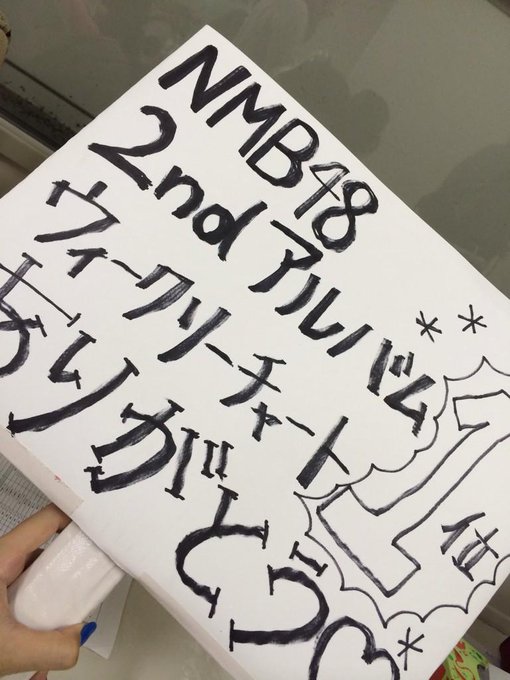 NMB48
2nd アルバム
ウィークリーチャート
1位
ありがとう♡